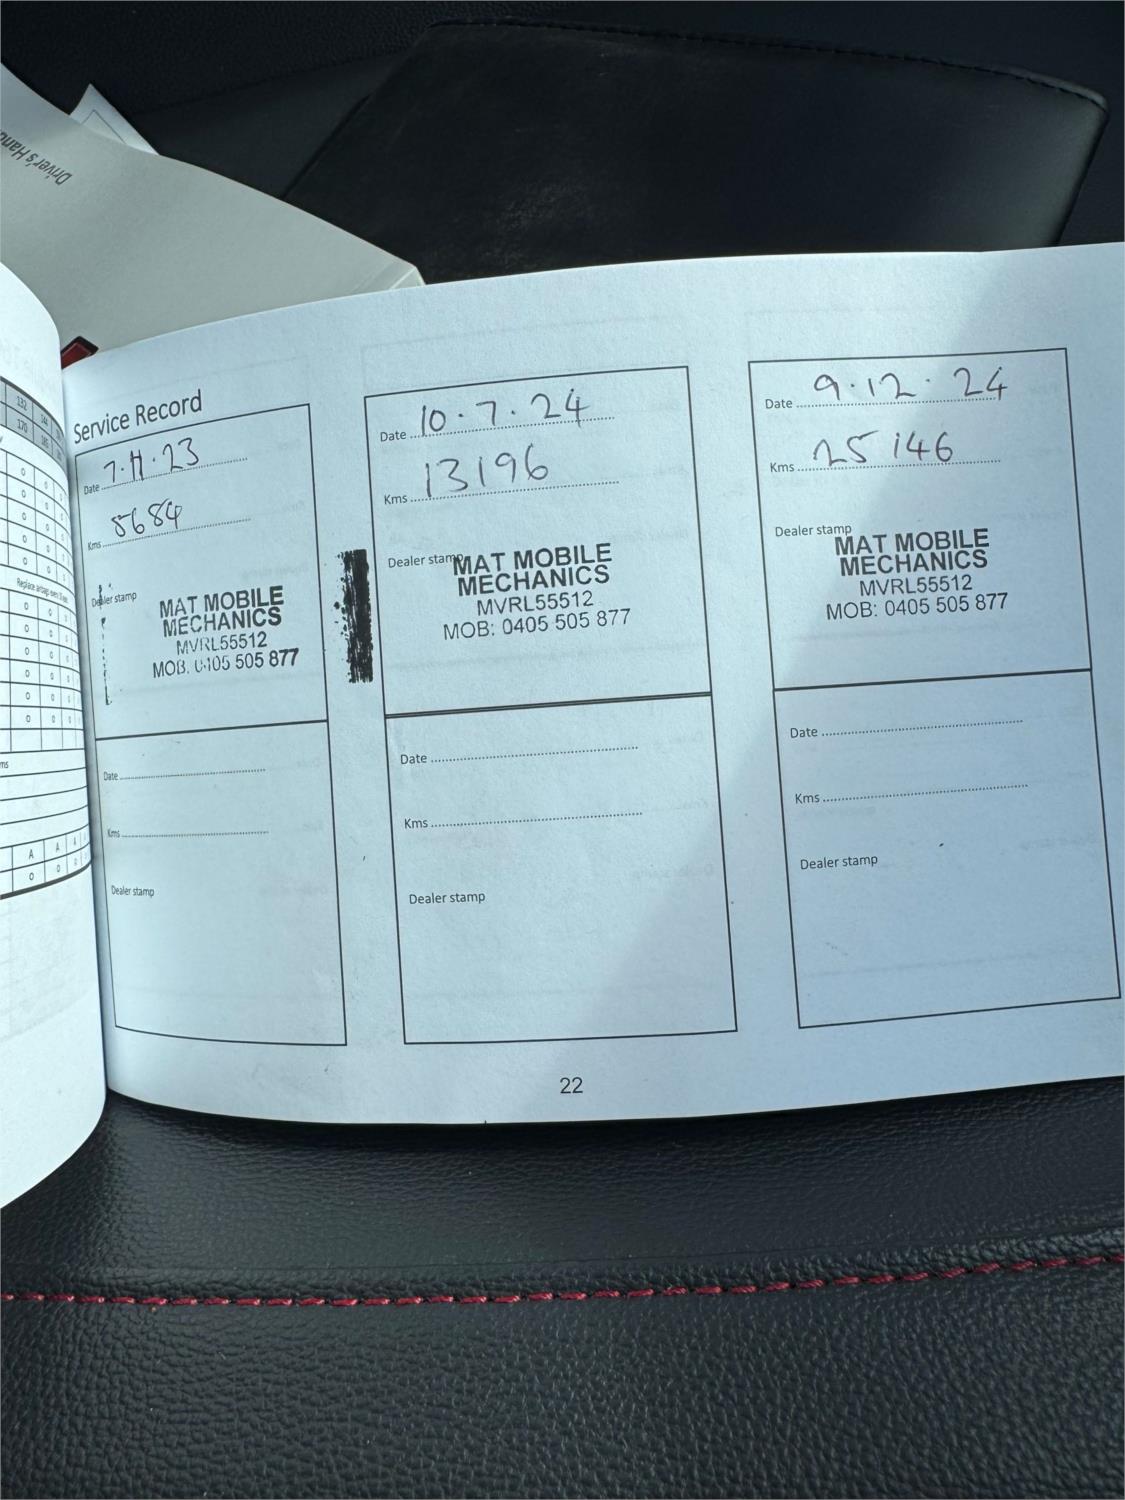 Driver's Hand
132
144
170
185
Replace airbags every 10 years
ms
A A A
Service Record
Date 7.11.23
Kms 8684
Dealer stamp
MAT MOBILE
MECHANICS
MVRL55512
MOB. 0405 505 877
Date
Kms
Dealer stamp
Date 10.7.24
Kms 13196
Dealer stamp
MAT MOBILE
MECHANICS
MVRL55512
MOB: 0405 505 877
Date
Kms
Dealer stamp
Date 9.12.24
Kms 25146
Dealer stamp
MAT MOBILE
MECHANICS
MVRL55512
MOB: 0405 505 877
Date
Kms
Dealer stamp
22